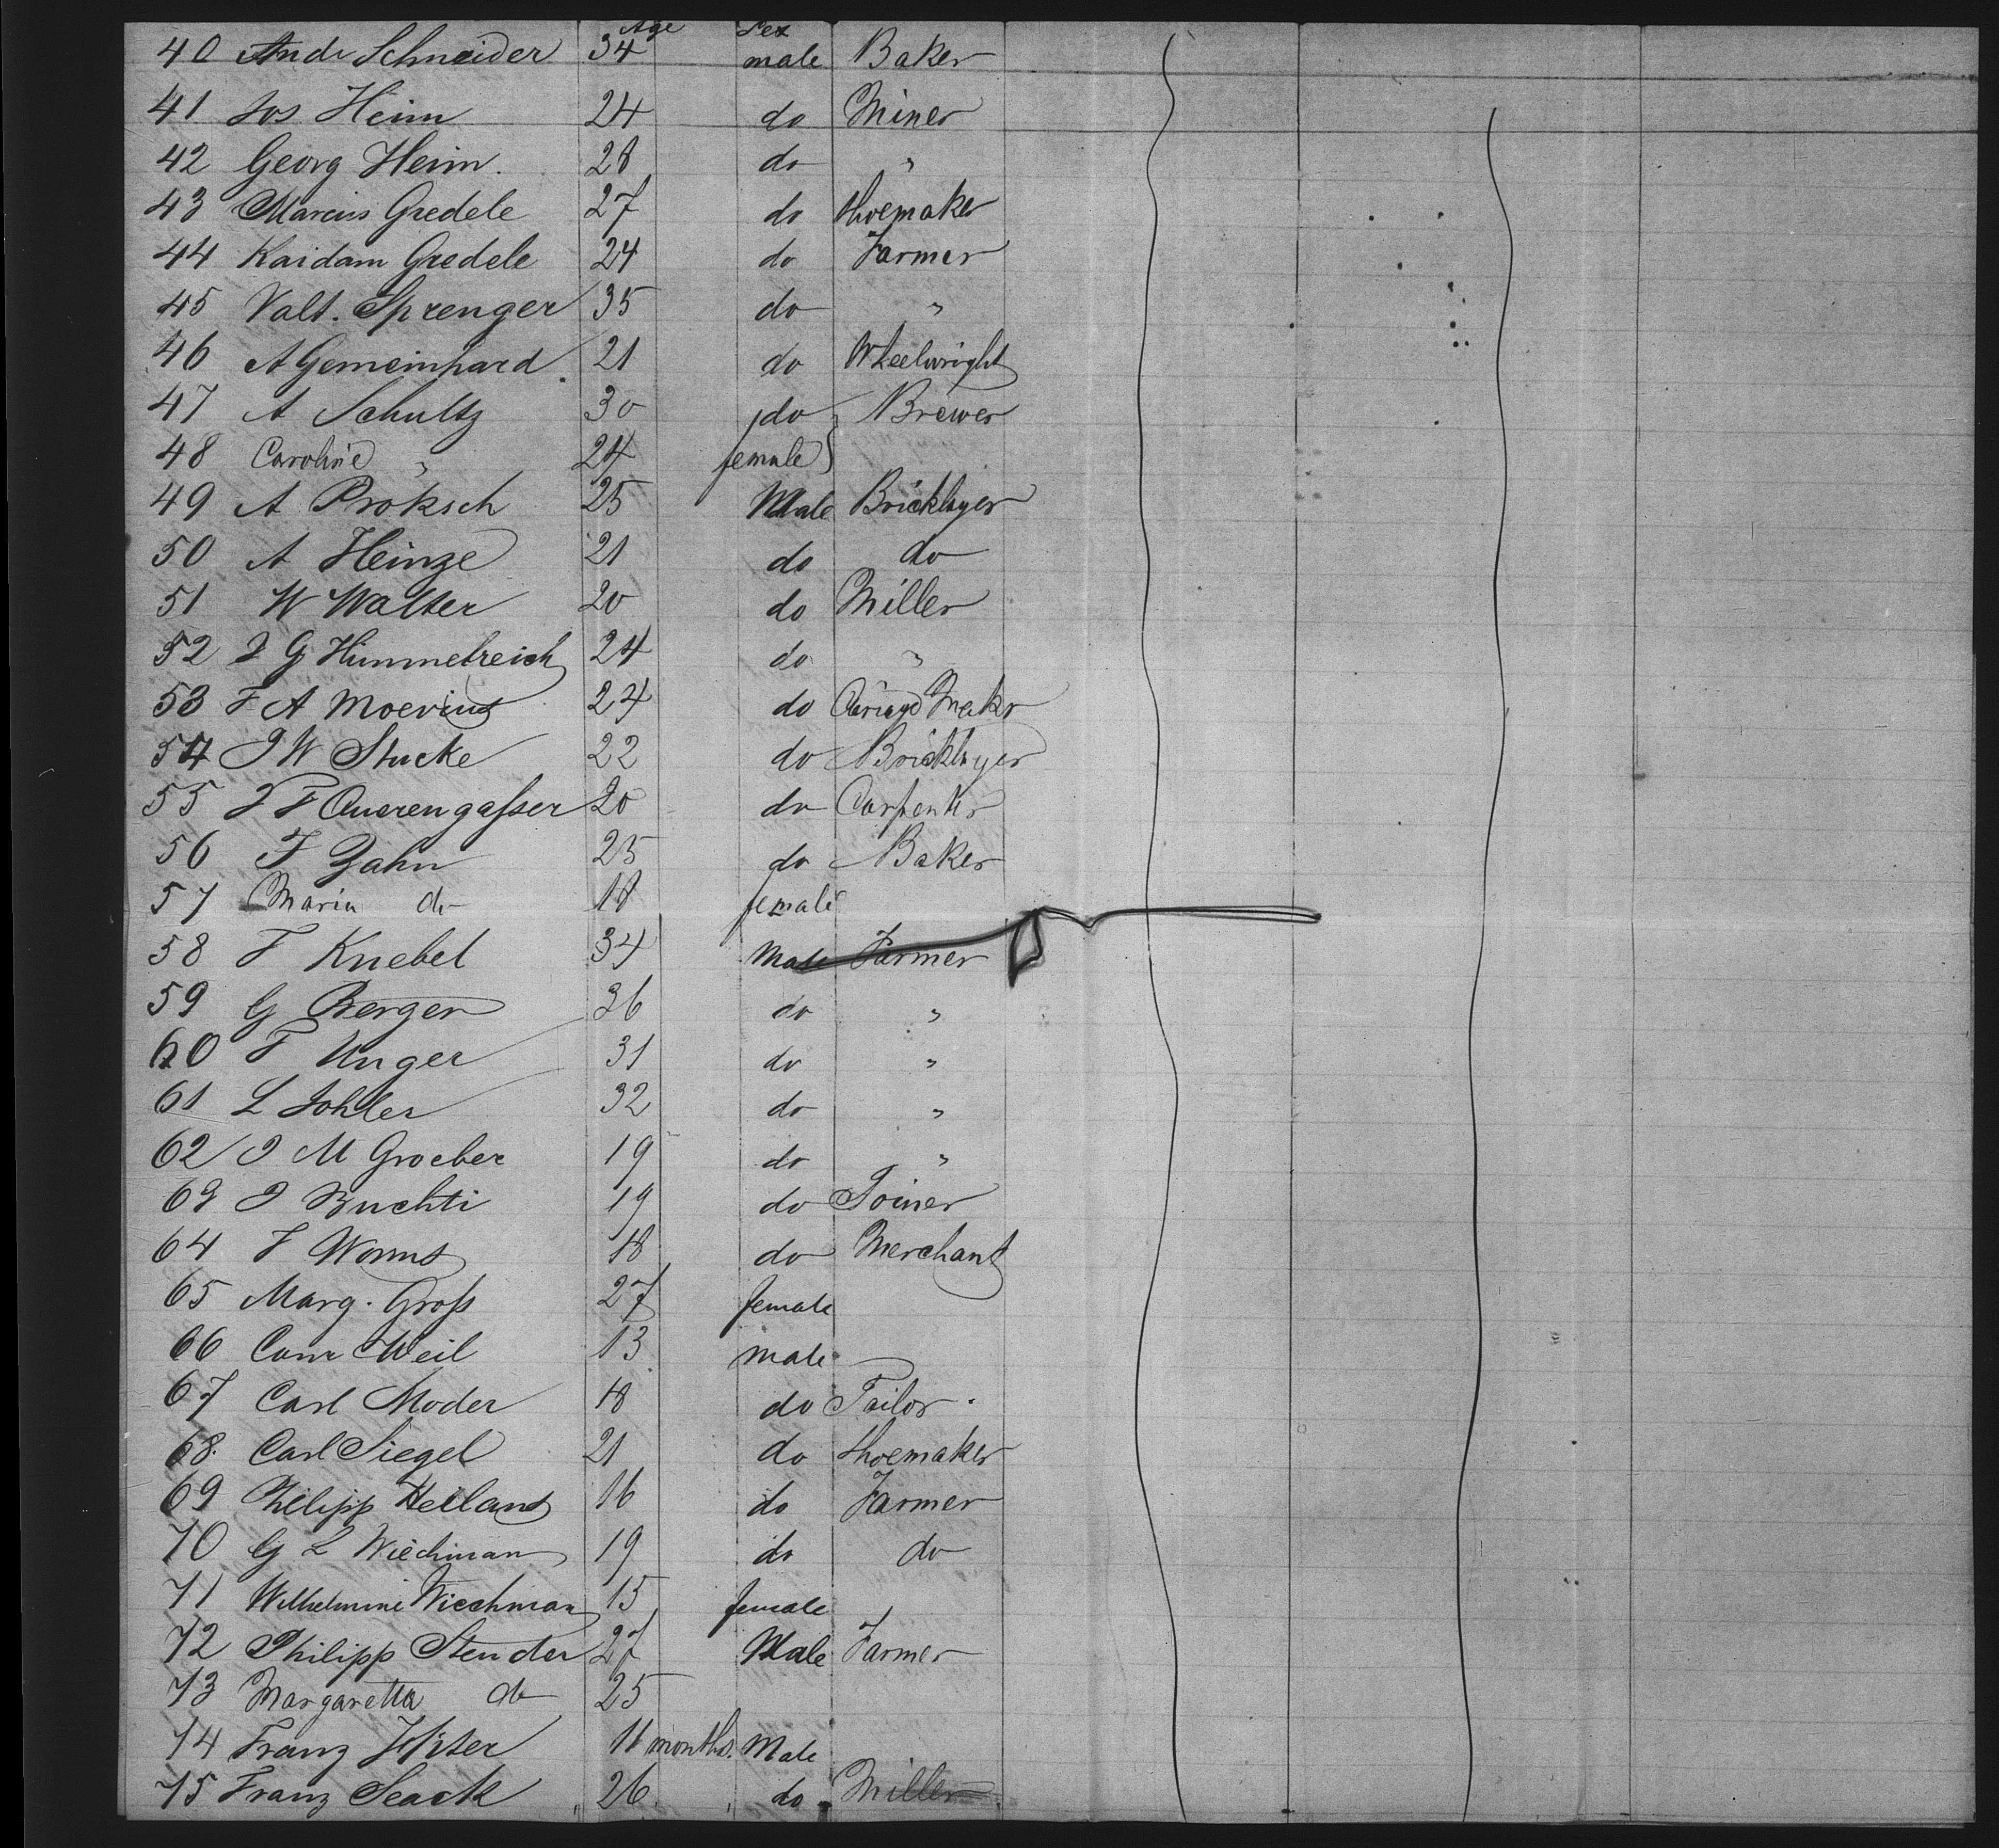 Age Sex
40 Andr Schneider 34 male Baker
41 Jos Heim 24 do Miner
42 Georg Heim. 28 do "
43 Marcus Gredele 27 do Shoemaker
44 Kaidam Gredele 24 do Farmer
45 Valt. Sprenger 35 do "
46 A Gemeinhard. 21 do Wheelwright
47 A Schultz 30 do Brewer
48 Caroline " 24 female
49 A Proksch 25 Male Bricklayer
50 A Heinze 21 do do
51 W Walter 20 do Miller
52 J G Himmelreich 24 do "
53 F A Moevius 24 do Maker
54 J W Stucke 22 do Bricklayer
55 J F Querengasser 20 do Carpenter
56 F Zahn 25 do Baker
57 Maria do 18 female
58 F Knebel 34 Male Farmer
59 G Berger 36 do "
60 F Unger 31 do "
61 L Johler 32 do "
62 J M Groeber 19 do "
63 J Buchti 19 do Joiner
64 J Worms 18 do Merchant
65 Marg. Groß 27 female
66 Conr Weil 13 male
67 Carl Moder 18 do Tailor
68. Carl Siegel 21 do Shoemaker
69 Philipp Heiland 16 do Farmer
70 G L Wiechman 19 do do
71 Wilhelmine Wiechman 15 female
72 Philipp Stender 27 Male Farmer
73 Margaretta do 25
74 Franz 11 months. Male
75 Franz Seack 26 do Miller